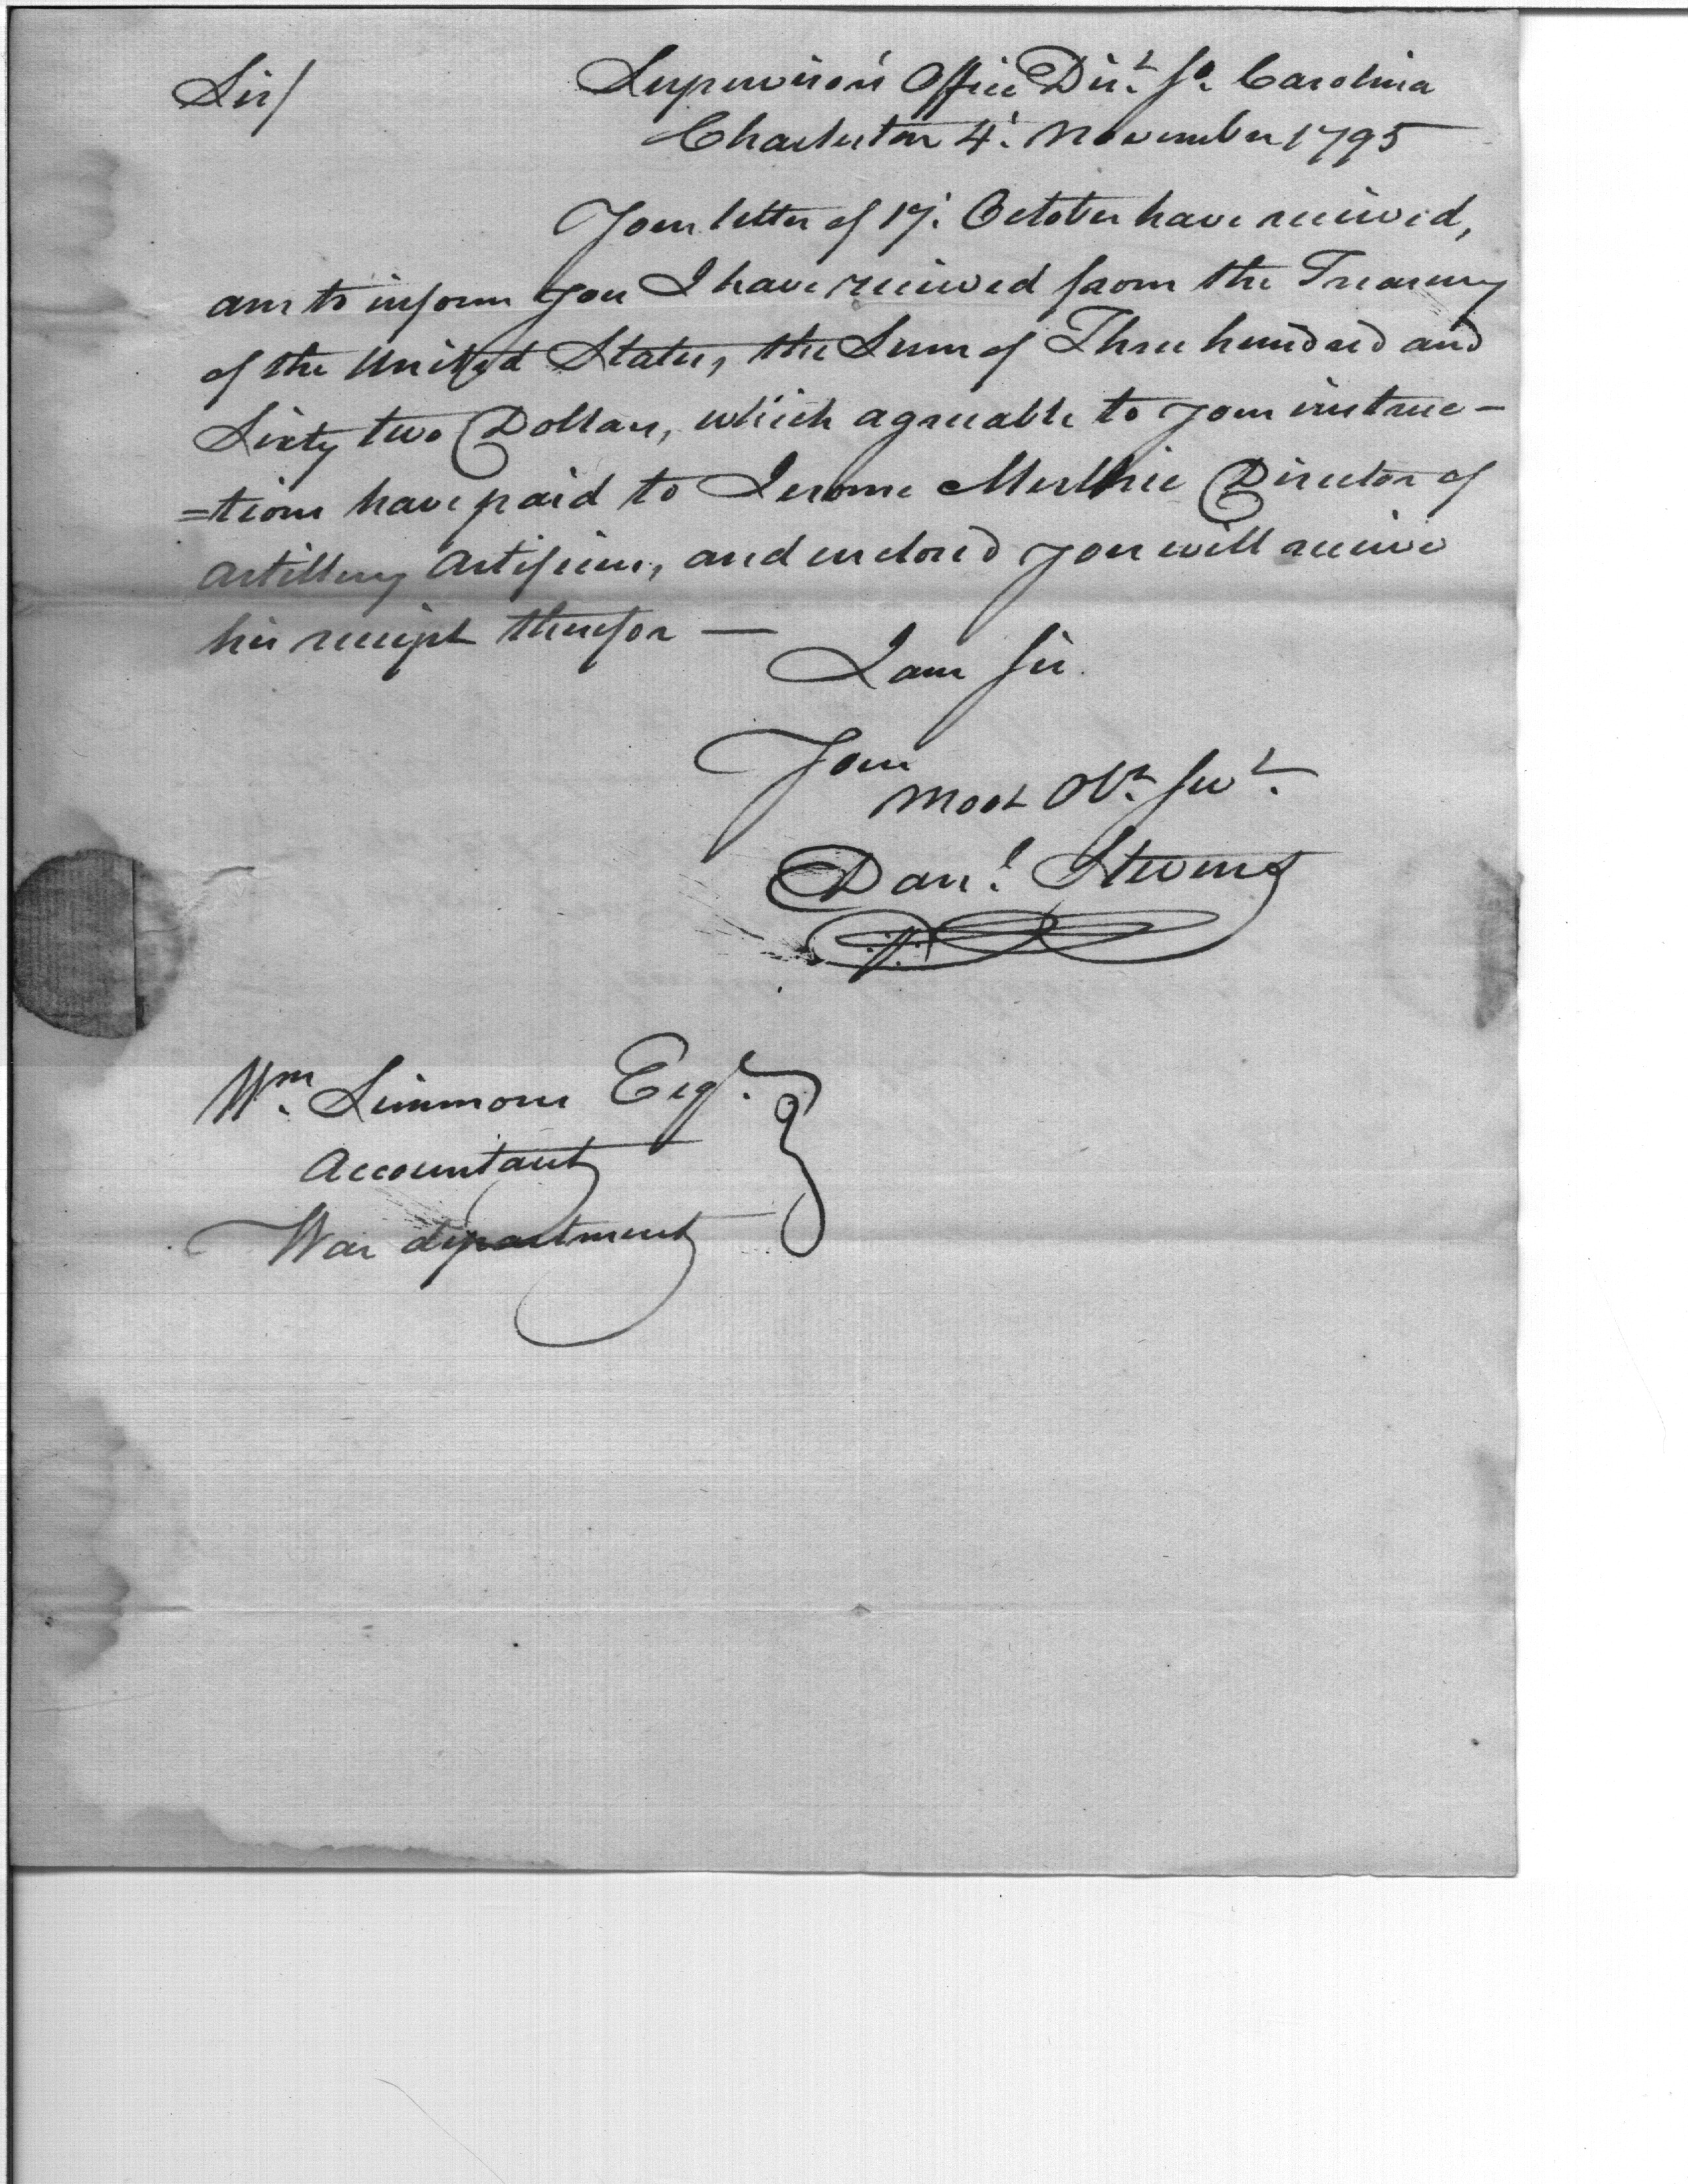 Sir/
Supervisors Office Dist. So. Carolina
Charleston 4. November 1795
Your letter of 17. October have received,
am to inform you I have received from the Treasury
of the United States, the Sum of Three hundred and
Sixty two Dollars, which agreeable to your instruc-
=tions have paid to Jerome Director of
Artillery Artificers, and enclosed you will receive
his receipt therefor —
I am Sir.
Your
Most Obt. Servt.
Danl. Stevens
Wm. Simmons Esqr.
Accountant
War department